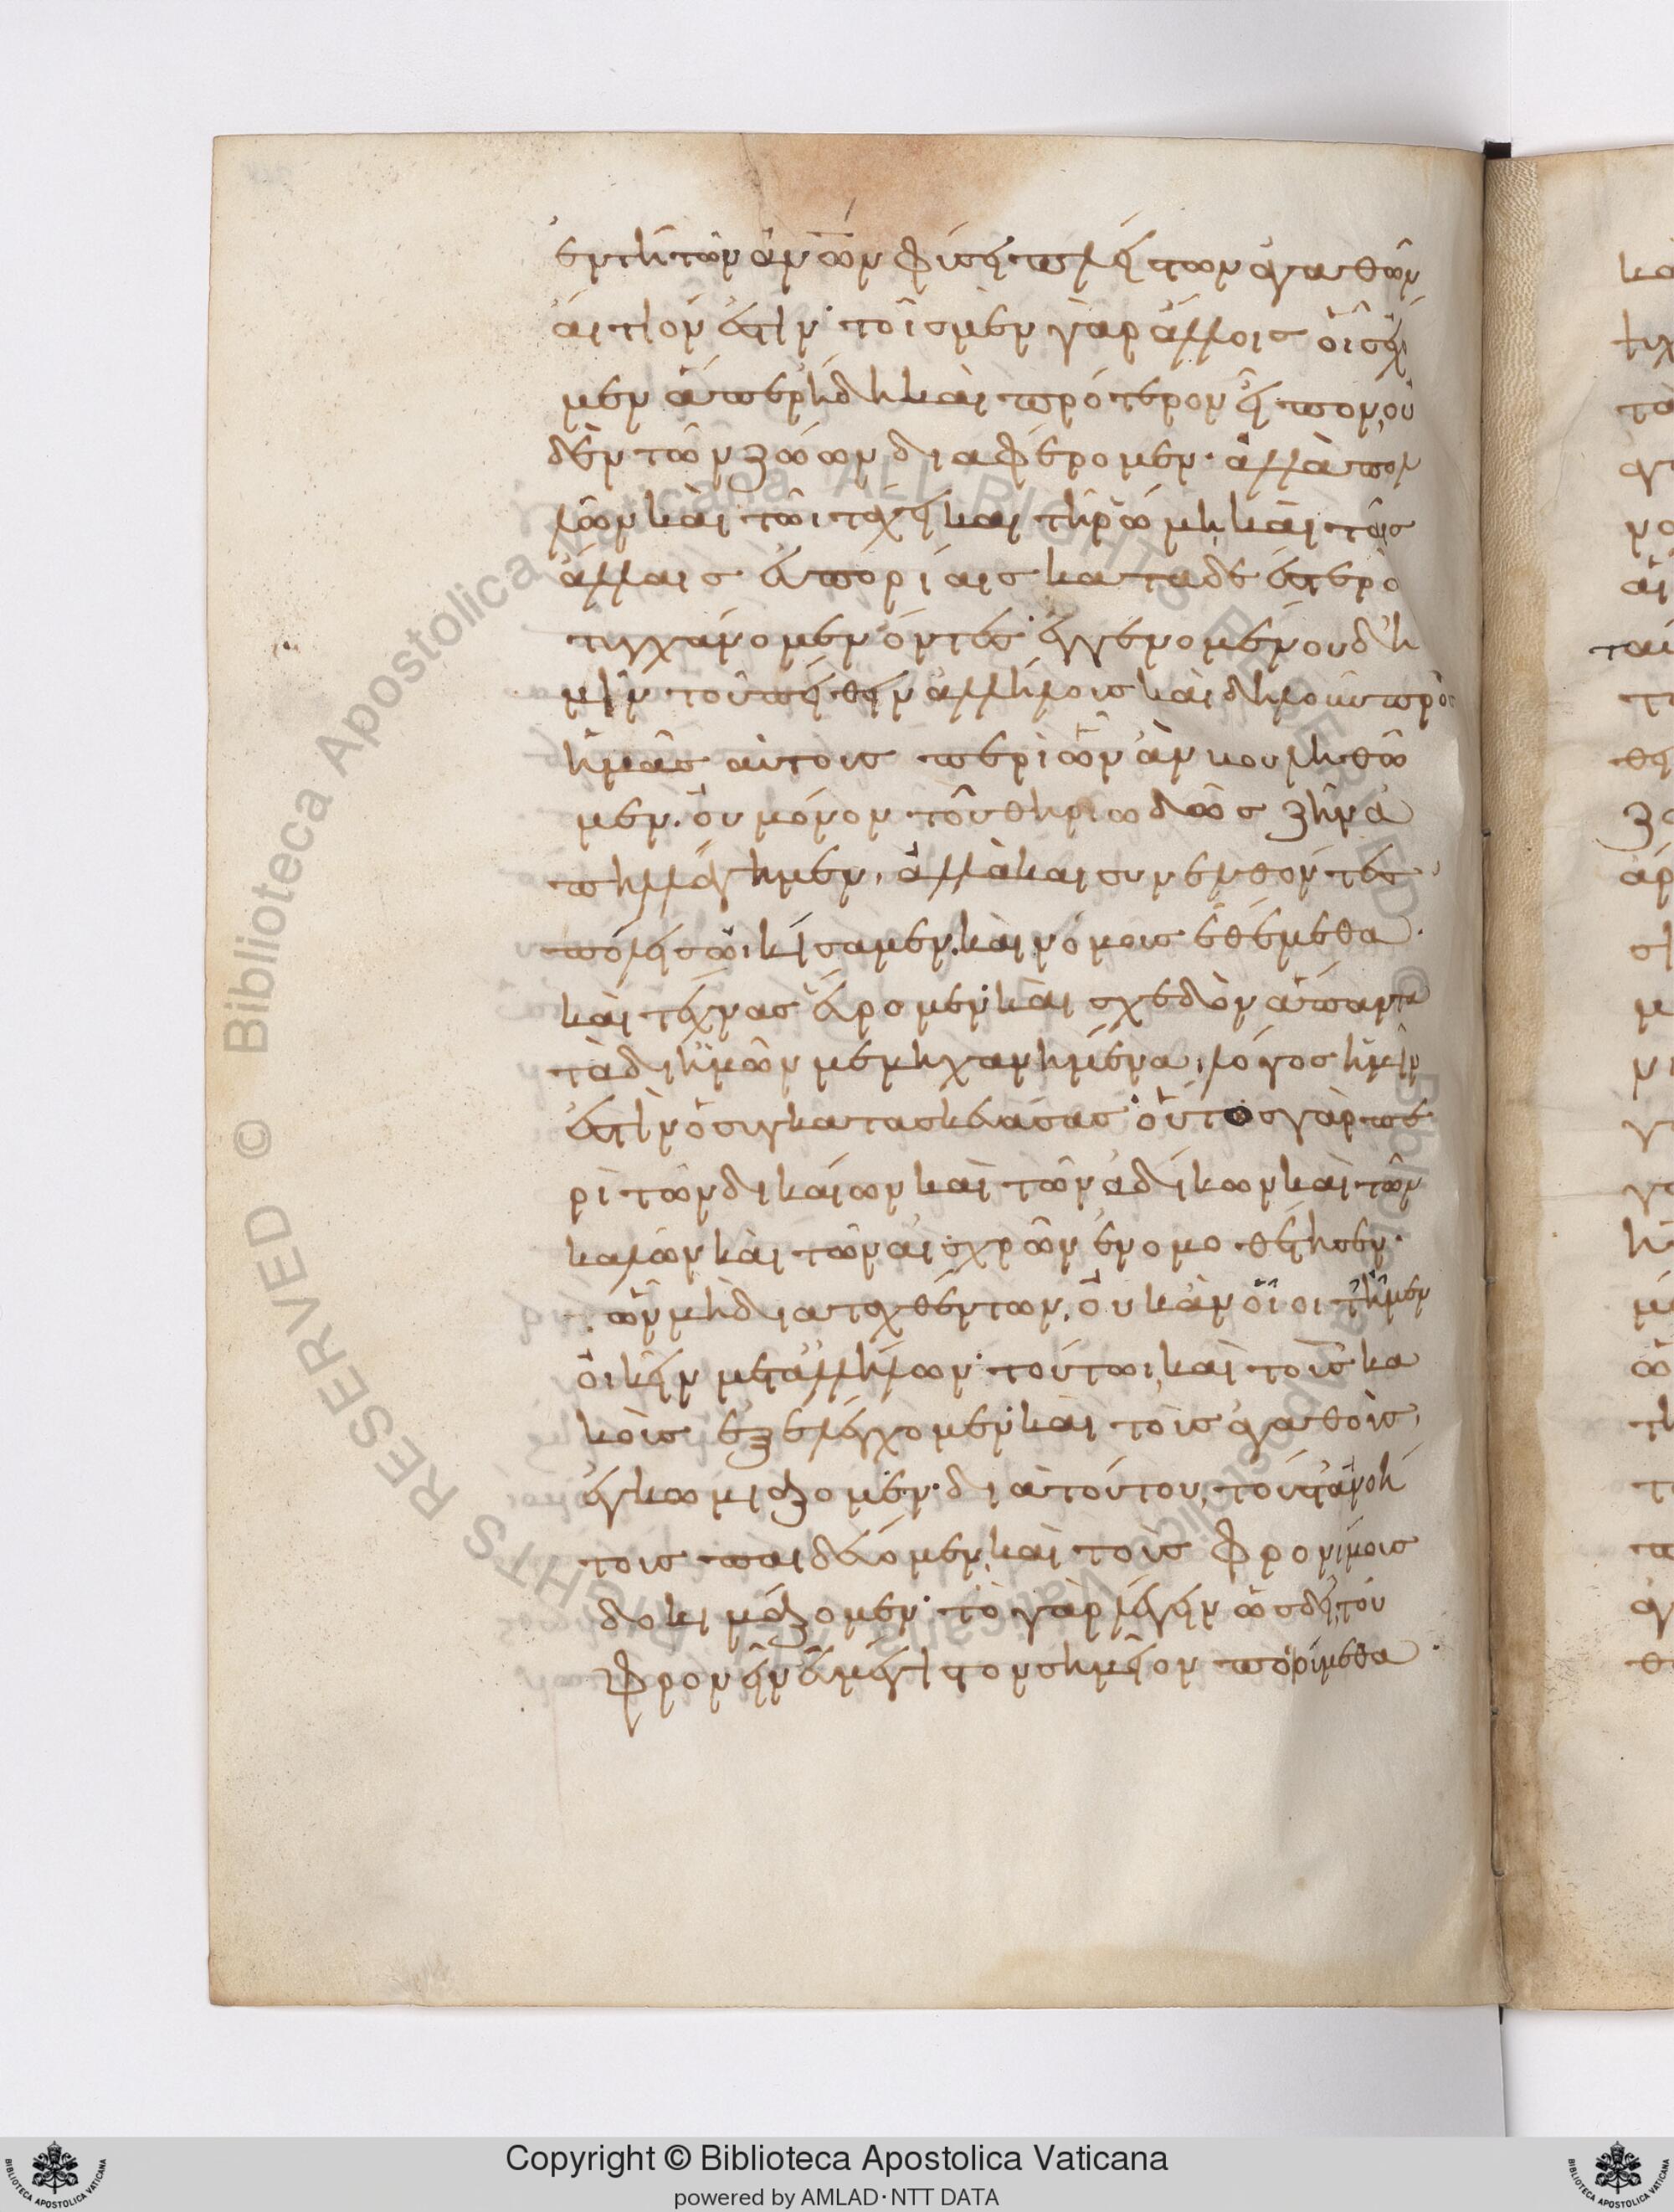 ἐν τῆ τῶν ἀν̅ων φύσει πλείστων ἀγαθῶν
αἴτιόν ἐστιν· τοῖς μὲν γὰρ ἄλλοις οἷς ἔχο
μεν ἅπερ ἤδη καὶ πρότερον εἶπον, οὐ
δὲν τῶν ζώων διαφέρομεν· ἀλλὰ πολ
λῶν καὶ τῶι τάχει καὶ τῆ ῥώμη καὶ ταῖς
ἄλλαις εὐπορίαις καταδεέστερο
τυγχάνομεν ὄντες· ἐγγενομένου δ' ἡ
μῖν τοῦ πείθειν ἀλλήλους καὶ δηλοῦν πρὸς
ἡμᾶς αὐτοὺς περὶ ὧν ἂν βουληθῶ
μεν. οὐ μόνον τοῦ θηριωδῶς ζῆν ἀ
πηλλάγημεν, ἀλλὰ καὶ συνελθόντες
πόλεις ὠικίσαμεν. καὶ νόμους ἐθέμεθα·
καὶ τέχνας εὕρομεν· καὶ σχεδὸν ἅπαντα
τὰ δι' ἡμῶν μεμηχανημένα, λόγος ἡμῖν
ἐστὶν ὁ συγκατασκευάσας· οὗτος γὰρ πε
ρὶ τῶν δικαίων καὶ τῶν ἀδίκων καὶ τῶν
καλῶν καὶ τῶν αἰσχρῶν ἐνομοθέτησεν·
ὧν μὴ διαταχθέντων, οὐκ ἂν οἷοί τ' ἦμεν
οἰκεῖν μετ' ἀλλήλων· τούτωι, καὶ τοὺς κα
κοὺς ἐξελέγχομεν· καὶ τοὺς ἀγαθοὺς,
ἐγκωμιάζομεν· διὰ τούτου, τούς τ' ἀνοή
τους παιδεύομεν, καὶ τοὺς φρονίμους
δοκιμάζομεν· τὸ γὰρ λέγειν ὡς δεῖ, τοῦ
φρονεῖν εὖ μέγιστον σημεῖον ποιούμεθα·
Copyright © Biblioteca Apostolica Vaticana
powered by AMLAD·NTT DATA